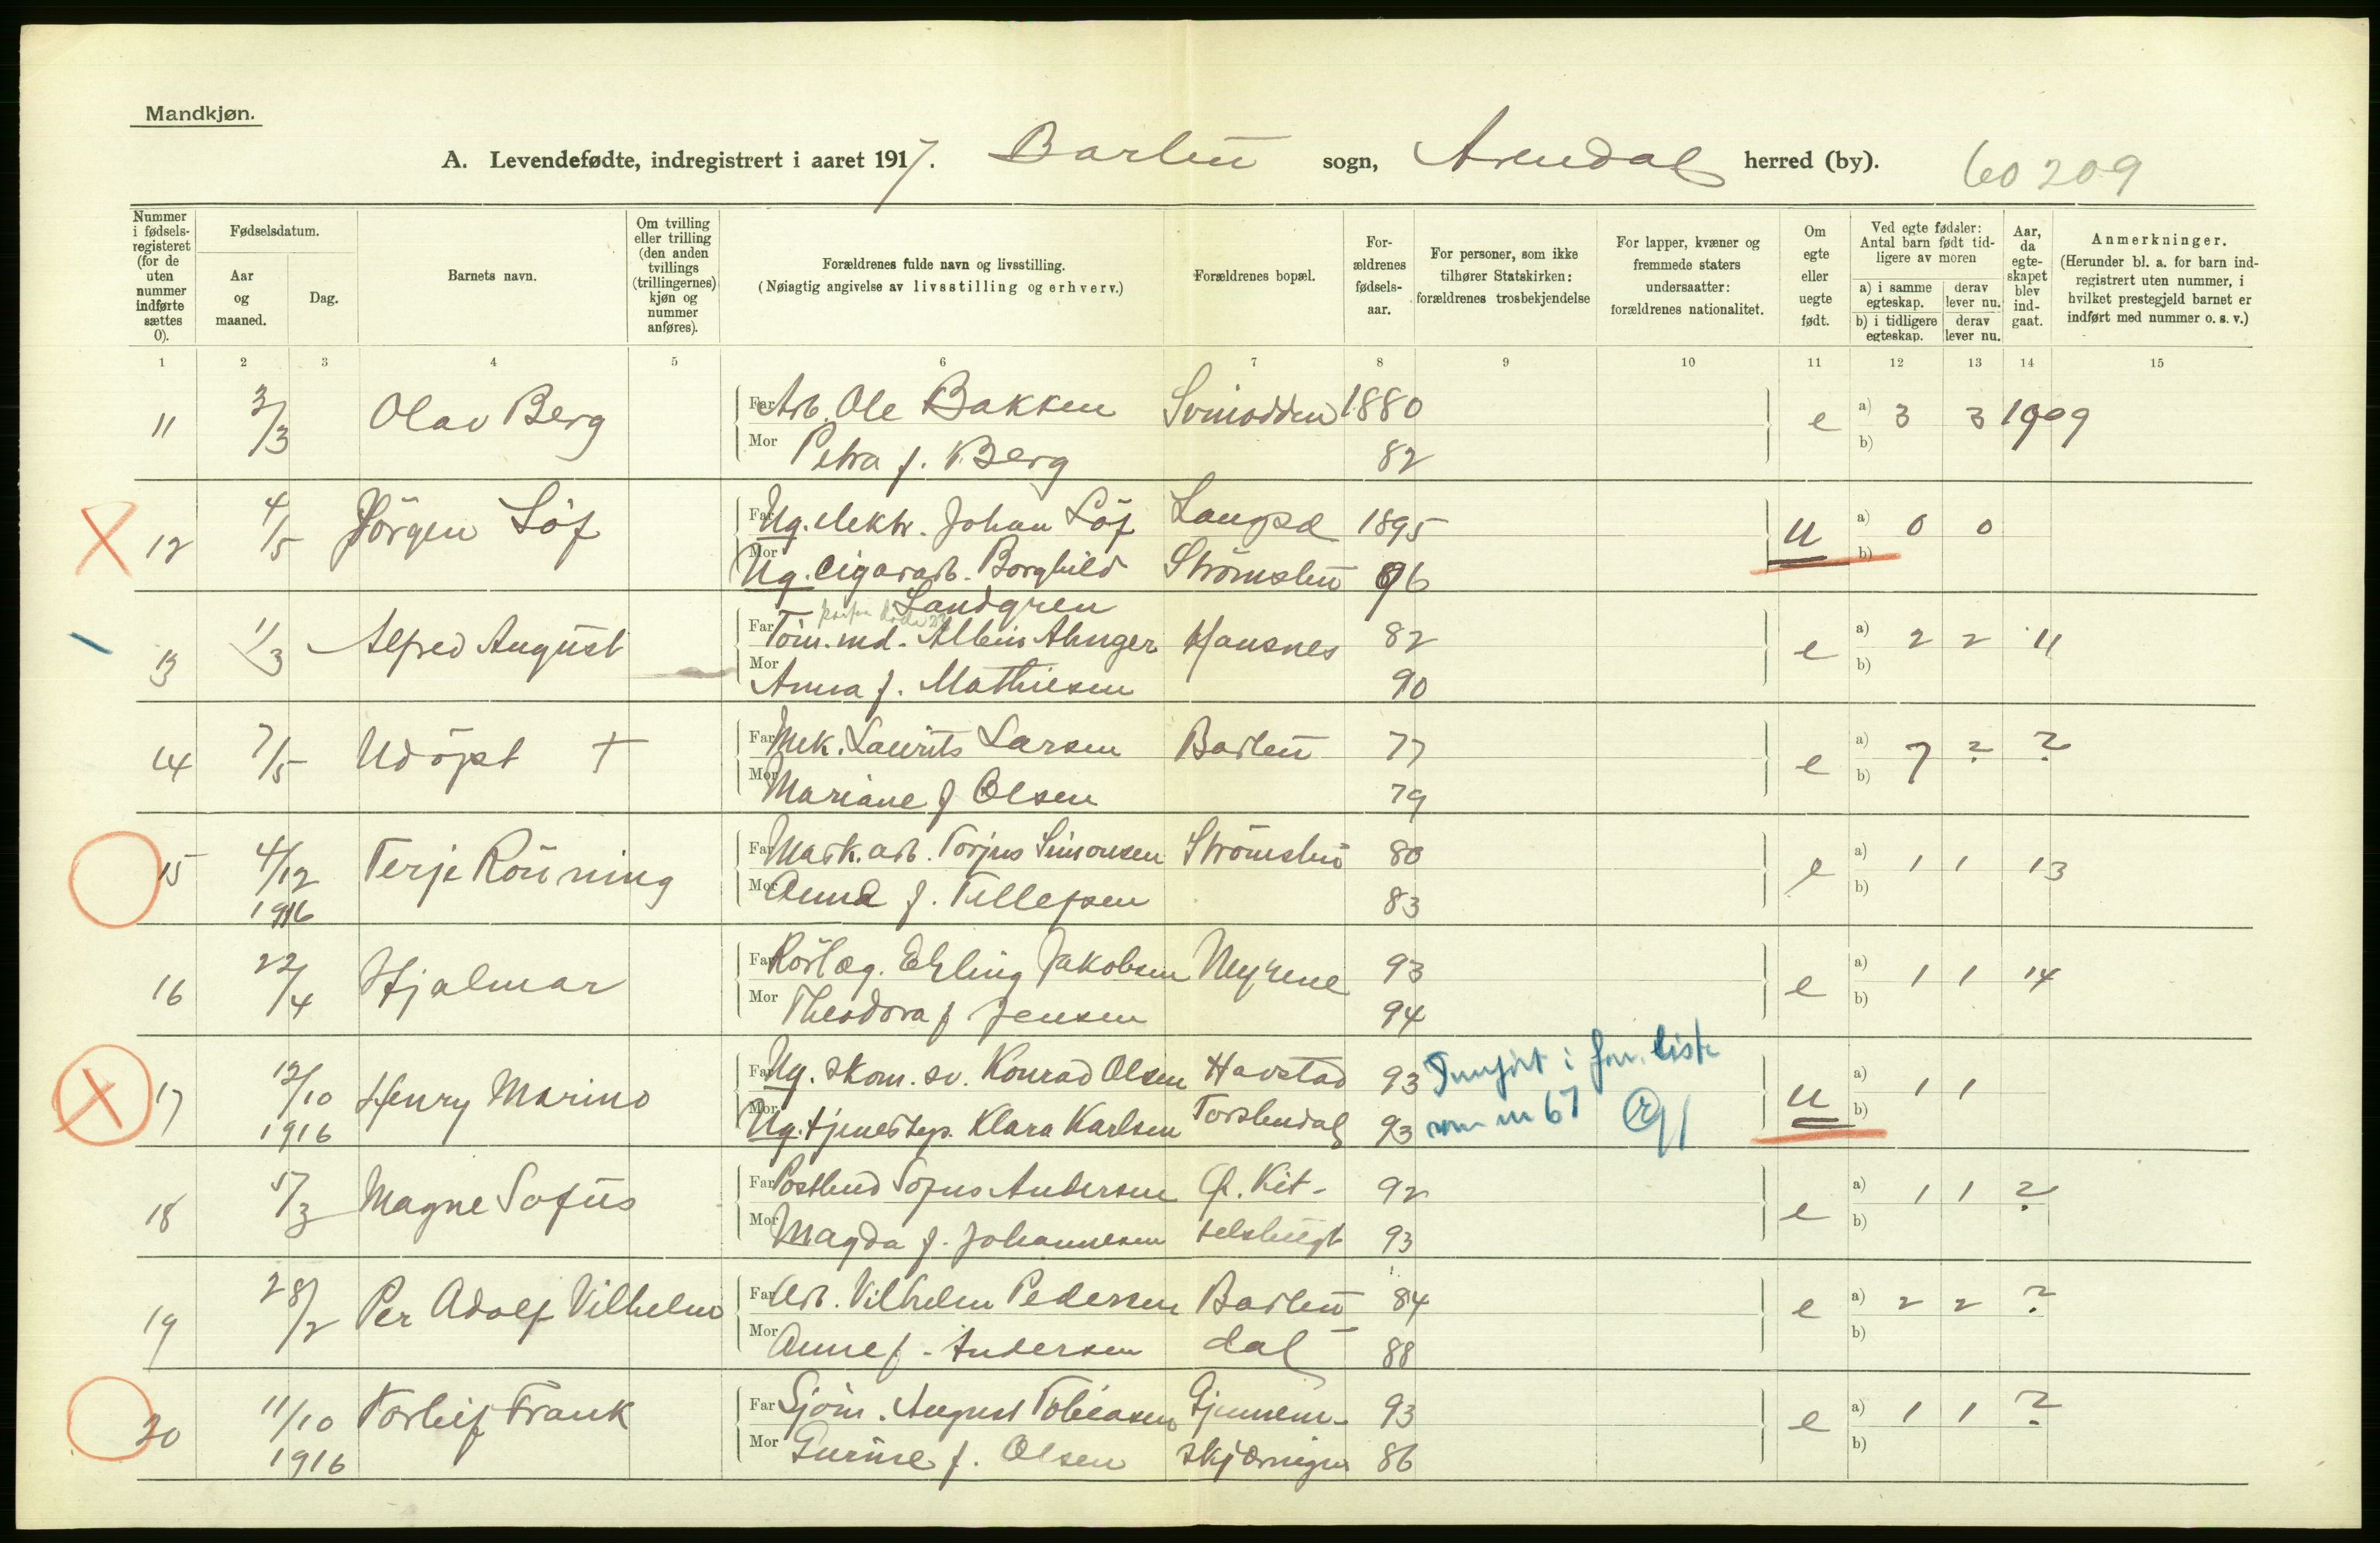 Mandkjøn.
A. Levendefødte, indregistrert i aaret 1917. Barbu sogn, Arendal herred (by). 60 209
Nummer i fødsels-registeret (for de uten nummer indførte sættes 0).
Fødselsdatum.
Aar og maaned.
Dag.
Barnets navn.
Om tvilling eller trilling (den anden tvillings (trillingernes) kjøn og nummer anføres).
Forældrenes fulde navn og livsstilling.
(Nøiagtig angivelse av livsstilling og erhverv.)
Forældrenes bopæl.
For-ældrenes fødsels-aar.
For personer, som ikke tilhører Statskirken: forældrenes trosbekjendelse
For lapper, kvæner og fremmede staters undersaatter: forældrenes nationalitet.
Om egte eller uegte født.
Ved egte fødsler: Antal barn født tid-ligere av moren
a) i samme egteskap.
derav lever nu.
b) i tidligere egteskap.
derav lever nu.
Aar, da egte-skapet blev ind-gaat.
Anmerkninger.
(Herunder bl. a. for barn ind-registrert uten nummer, i hvilket prestegjeld barnet er indført med nummer o. s. v.)
1 2 3 4 5 6 7 8 9 10 11 12 13 14 15
11 3/3 Olav Berg Far Arb. Ole Bakken Svinodden 1880 e a) 3 3 1909
Mor Petra f. Berg 82 b)
12 4/5 Jörgen Löf Far Ug. elektr. Johan Löf Langsæ 1895 u a) 0 0
Mor Ug. Cigararb. Borghild Strömsbu 96 b)
Landgren
13 11/3 Alfred August Far Töm.md. Albin Alinger Hansnes 82 e a) 2 2 11
Mor Anna f. Mathiesen 90 b)
14 7/5 Udöpt † Far Mek. Laurits Larsen Barbu 77 e a) 7 ? ?
Mor Mariane f Olsen 79 b)
15 4/12 Terje Rönning Far Mask.arb. Torjus Simonsen Strömsbu 80 e a) 1 1 13
1916 Mor Anna f. Tellefsen 83 b)
16 22/4 Hjalmar Far Rörlæg. Erling Jakobsen Myrene 93 e a) 1 1 14
Mor Theodora f Jensen 94 b)
17 12/10 Henry Marino Far Ug. skom. sv. Konrad Olsen Havstad 93 Innfört i for. liste u a) 1 1
1916 Mor Ug. tjenestep. Klara Karlsen Torsbudal 93 som nr 67 b)
18 5/3 Magne Sofus Far Postbud Sofus Andersen Ø. Kit- 92 e a) 1 1 ?
Mor Magda f. Johannesen telsbugt 93 b)
19 28/2 Per Adolf Vilhelm Far Arb. Vilhelm Pedersen Barbu- 84 e a) 2 2 ?
Mor Anne f. Andersen dal 88 b)
20 11/10 Torleif Frank Far Sjöm. August Tobiasen Gjennem- 93 e a) 1 1 ?
1916 Mor Gurine f. Olsen skjæringen 86 b)